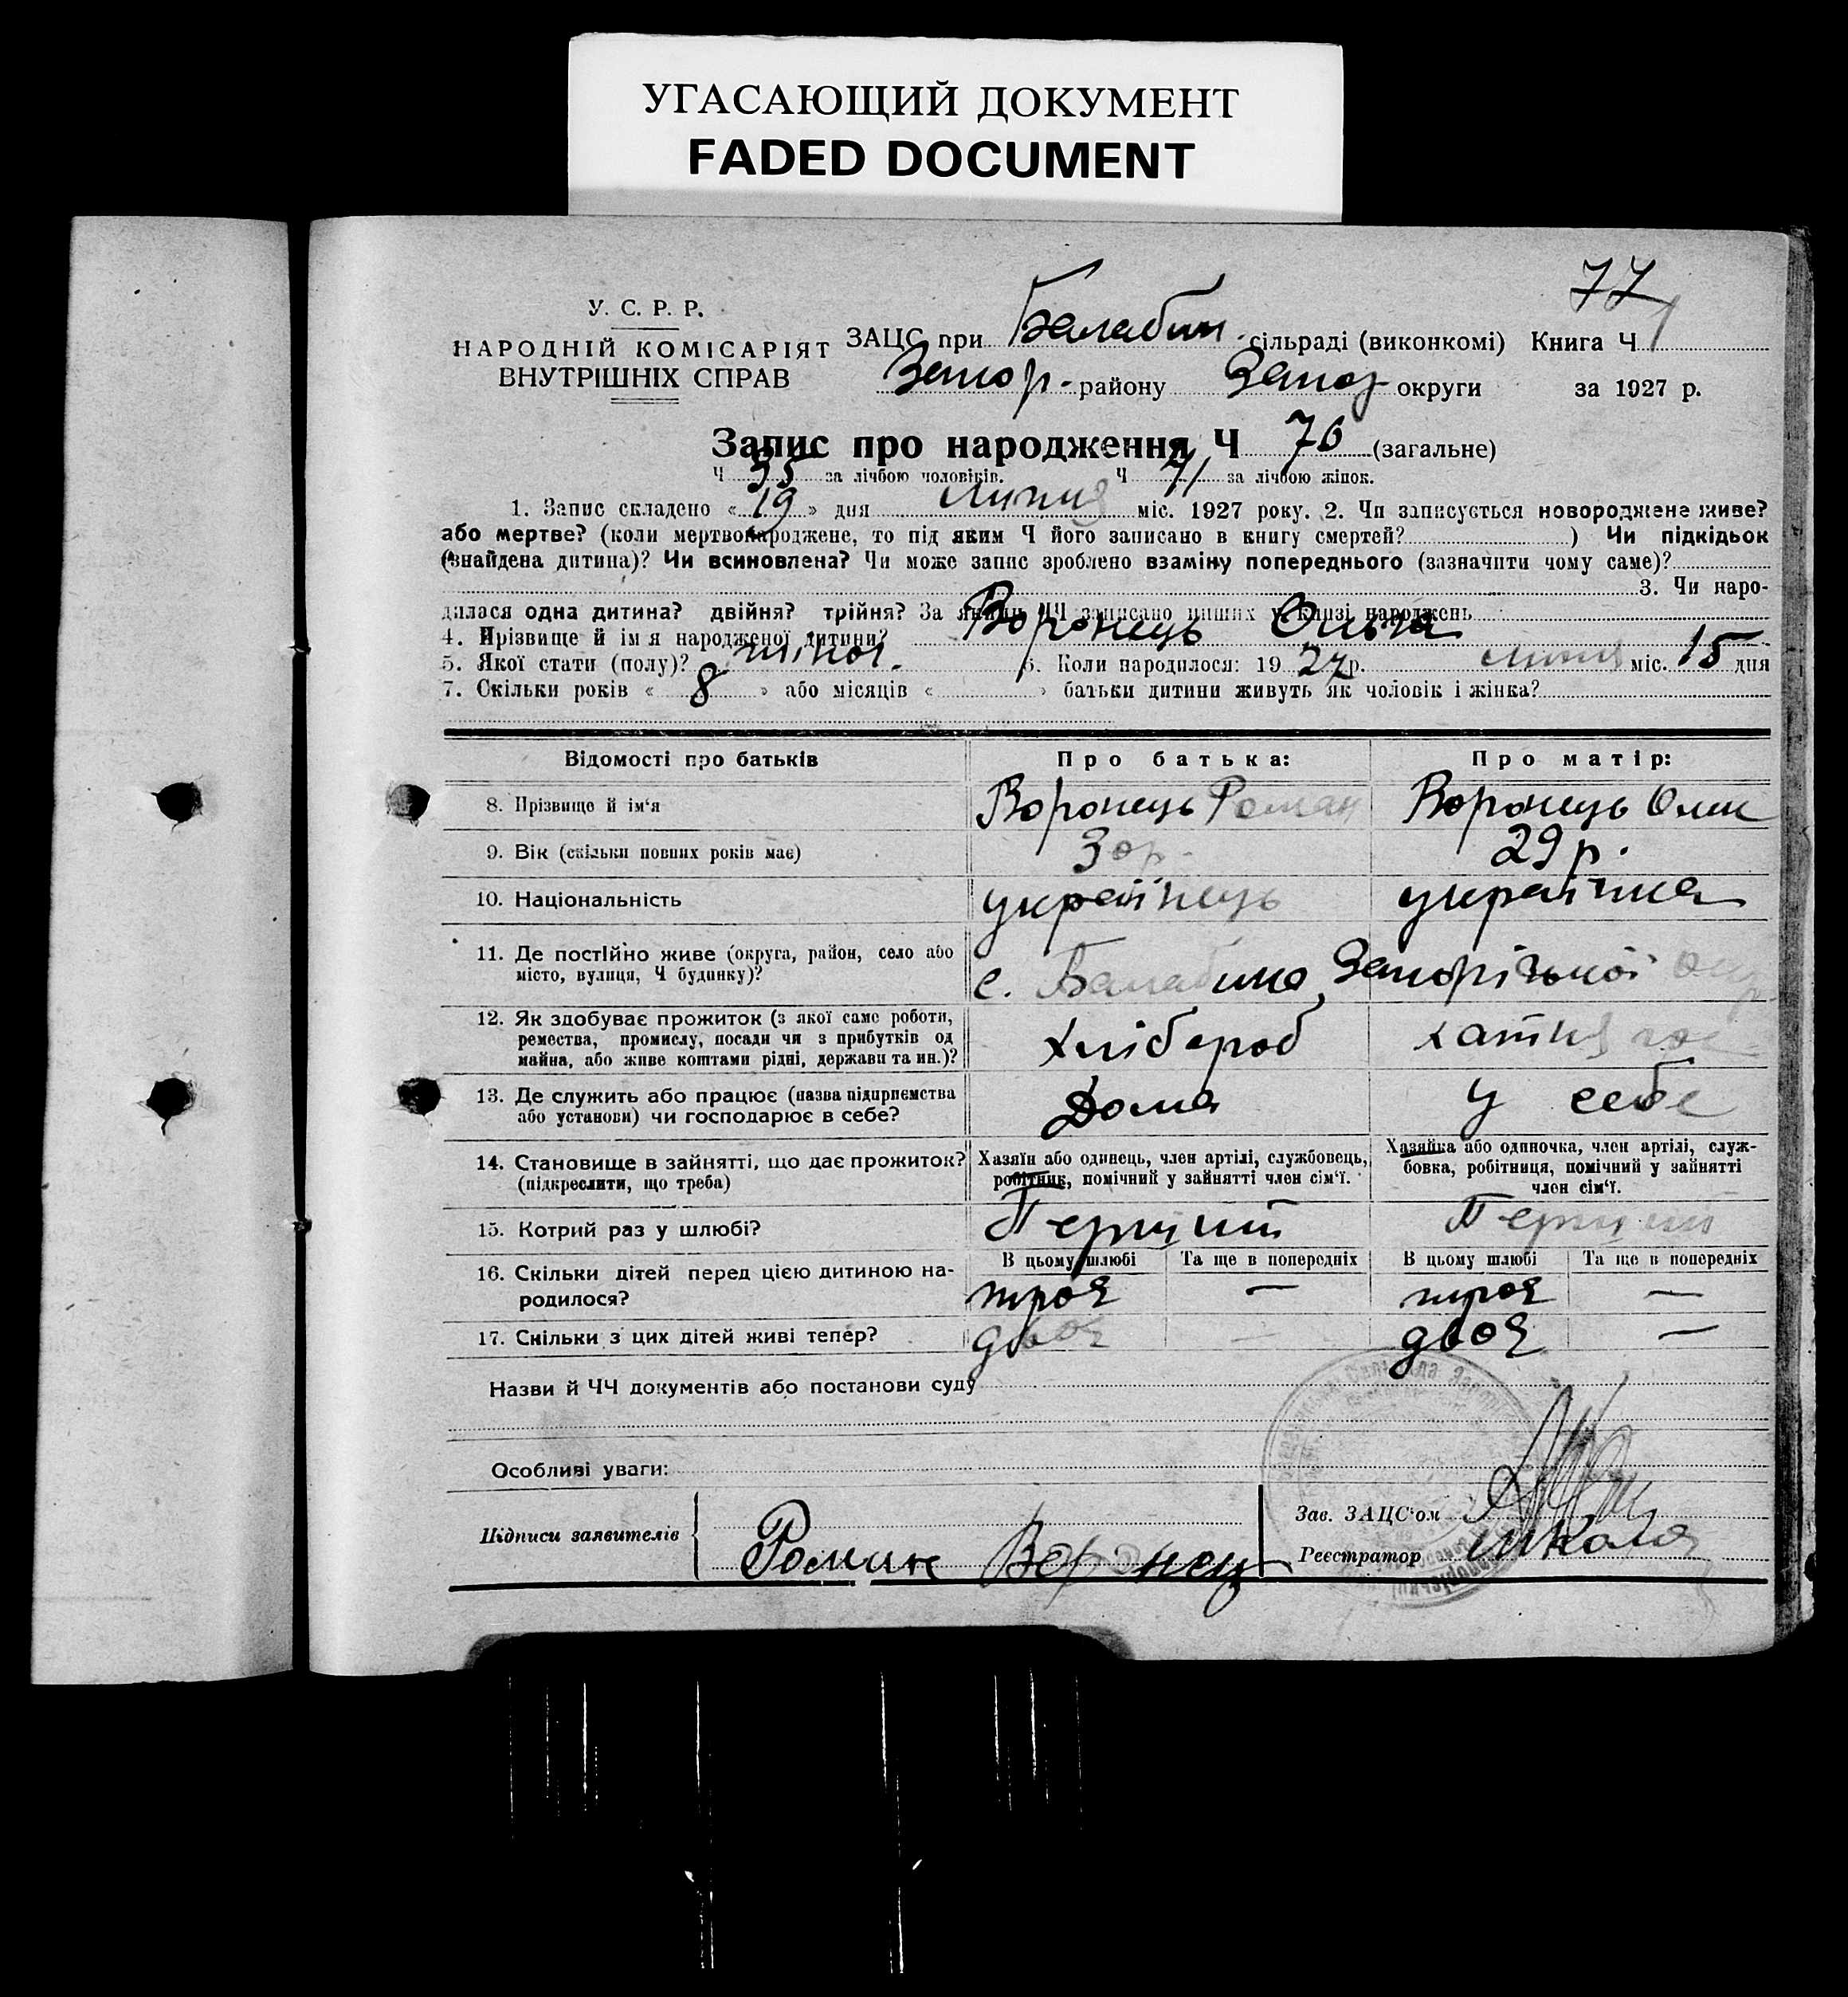 УГАСАЮЩИЙ ДОКУМЕНТ
FADED DOCUMENT
77
У. С. Р. Р.
НАРОДНІЙ КОМІСАРІЯТ
ВНУТРІШНІХ СПРАВ
ЗАЦС при Балабин. сільраді (виконкомі) Книга Ч 1
Запор. району Запор округи за 1927 р.
Запис про народження Ч 76 (загальне)
Ч 35 за лічбою чоловіків. Ч 41 за лічбою жінок.
1. Запис складено « 19 » дня липня міс. 1927 року. 2. Чи записується новороджене живе?
або мертве? (коли мертвонароджене, то під яким Ч його записано в книгу смертей? ) Чи підкідьок
(знайдена дитина)? Чи всиновлена? Чи може запис зроблено взаміну попереднього (зазначити чому саме)?
3. Чи наро-
дилася одна дитина? двійня? трійня? За якими ЧЧ записано инших у книзі народжень
4. Прізвище й ім'я народженої дитини? Воронець Ольга
5. Якої стати (полу)? жіноч. 6. Коли народилося: 19 27 р. липня міс. 15 дня
7. Скільки років « 8 » або місяців « » батьки дитини живуть як чоловік і жінка?
Відомості про батьків Про батька: Про матір:
8. Прізвище й ім'я Воронець Роман Воронець Олек
9. Вік (скільки повних років має) 30р. 29 р.
10. Національність українець українка
11. Де постійно живе (округа, район, село або
місто, вулиця, Ч будинку)? с. Балабино, Запорізької окр
12. Як здобуває прожиток (з якої саме роботи,
ремества, промислу, посади чи з прибутків од
майна, або живе коштами рідні, держави та ин.)? Хлібороб хатня гос
13. Де служить або працює (назва підприємства
або установи) чи господарює в себе? Дома у себе
14. Становище в зайнятті, що дає прожиток?
(підкреслити, що треба)
Хазяїн або одинець, член артілі, службовець,
робітник, помічний у зайнятті член сім'ї.
Хазяйка або одиночка, член артілі, служ-
бовка, робітниця, помічний у зайнятті
член сім'ї.
15. Котрий раз у шлюбі? Перший Перший
16. Скільки дітей перед цією дитиною на-
родилося?
В цьому шлюбі Та ще в попередніх В цьому шлюбі Та ще в попередніх
троє — троє —
17. Скільки з цих дітей живі тепер? двоє — двоє —
Назви й ЧЧ документів або постанови суду
Особливі уваги:
Підписи заявителів Роман Воронец
Зав. ЗАЦС'ом
Реєстратор